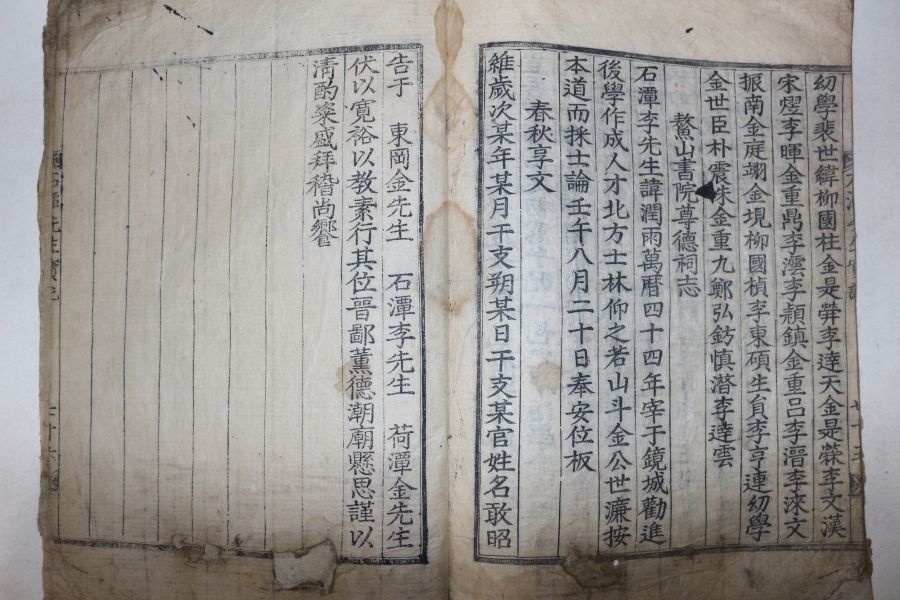 幼學裴世緯柳國柱金是鏻李達天金是䥧李文漢
宋熤李暉金重鼎李澐李穎鎮金重呂李溍李淶文
振南金庭翊金垷柳國楨李東碩生員李亨連幼學
金世臣朴震株金重九鄭弘鈁慎潛李達雲
鰲山書院尊德祠志
石潭李先生諱潤雨萬曆四十四年宰于鏡城勸進
後學作成人才北方士林仰之若山斗金公世濂按
本道而採士論壬午八月二十日奉安位板
春秋享文
維歲次某年某月干支朔某日干支某官姓名敢昭
告于 東岡金先生 石潭李先生 荷潭金先生
伏以寬裕以教素行其位晉鄙薰德潮廟懸思謹以
清酌粢盛拜稽尚饗
石潭先生實記